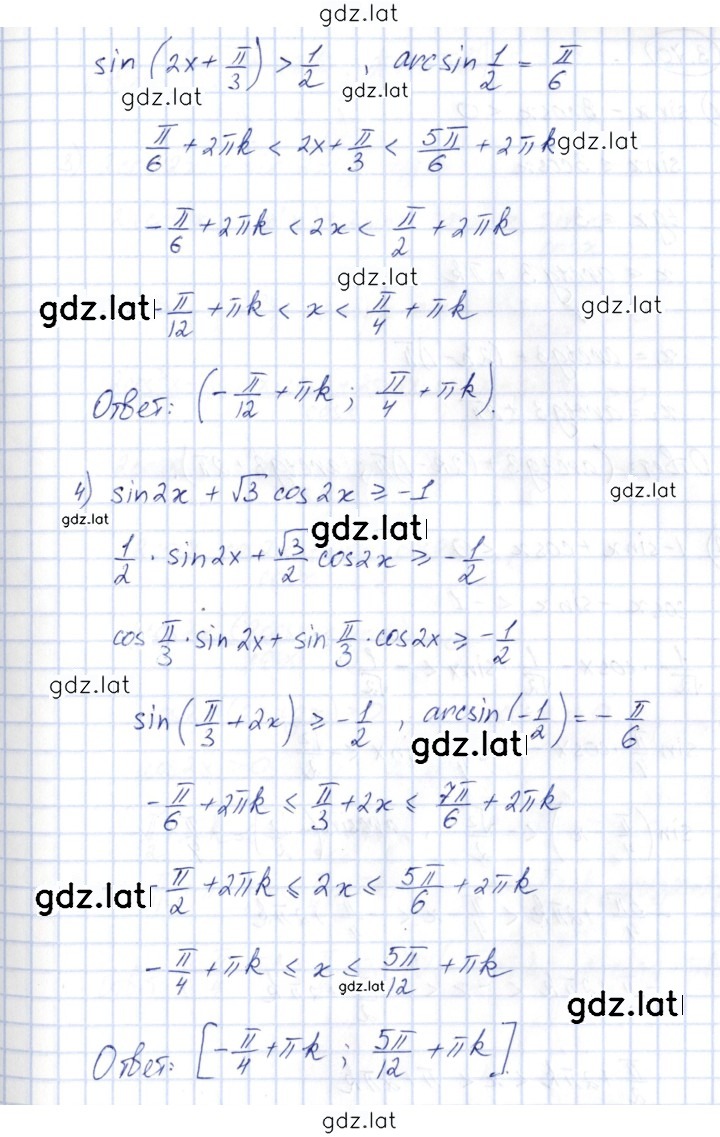 gdz.lat
sin (2x + π/3) > 1/2 , arcsin 1/2 = π/6
gdz.lat gdz.lat
π/6 + 2πk < 2x + π/3 < 5π/6 + 2πk gdz.lat
-π/6 + 2πk < 2x < π/2 + 2πk
gdz.lat
gdz.lat -π/12 + πk < x < π/4 + πk gdz.lat
Ответ: (-π/12 + πk ; π/4 + πk).
4) sin2x + √3 cos2x ≥ -1 gdz.lat
gdz.lat gdz.lat
1/2 · sin2x + √3/2 cos2x ≥ -1/2
cos π/3 · sin2x + sin π/3 · cos2x ≥ -1/2
gdz.lat
sin(π/3 + 2x) ≥ -1/2 , arcsin(-1/2) = -π/6
gdz.lat
-π/6 + 2πk ≤ π/3 + 2x ≤ 7π/6 + 2πk
gdz.lat -π/2 + 2πk ≤ 2x ≤ 5π/6 + 2πk
-π/4 + πk ≤ x ≤ 5π/12 + πk
gdz.lat gdz.lat
Ответ: [-π/4 + πk ; 5π/12 + πk].
gdz.lat